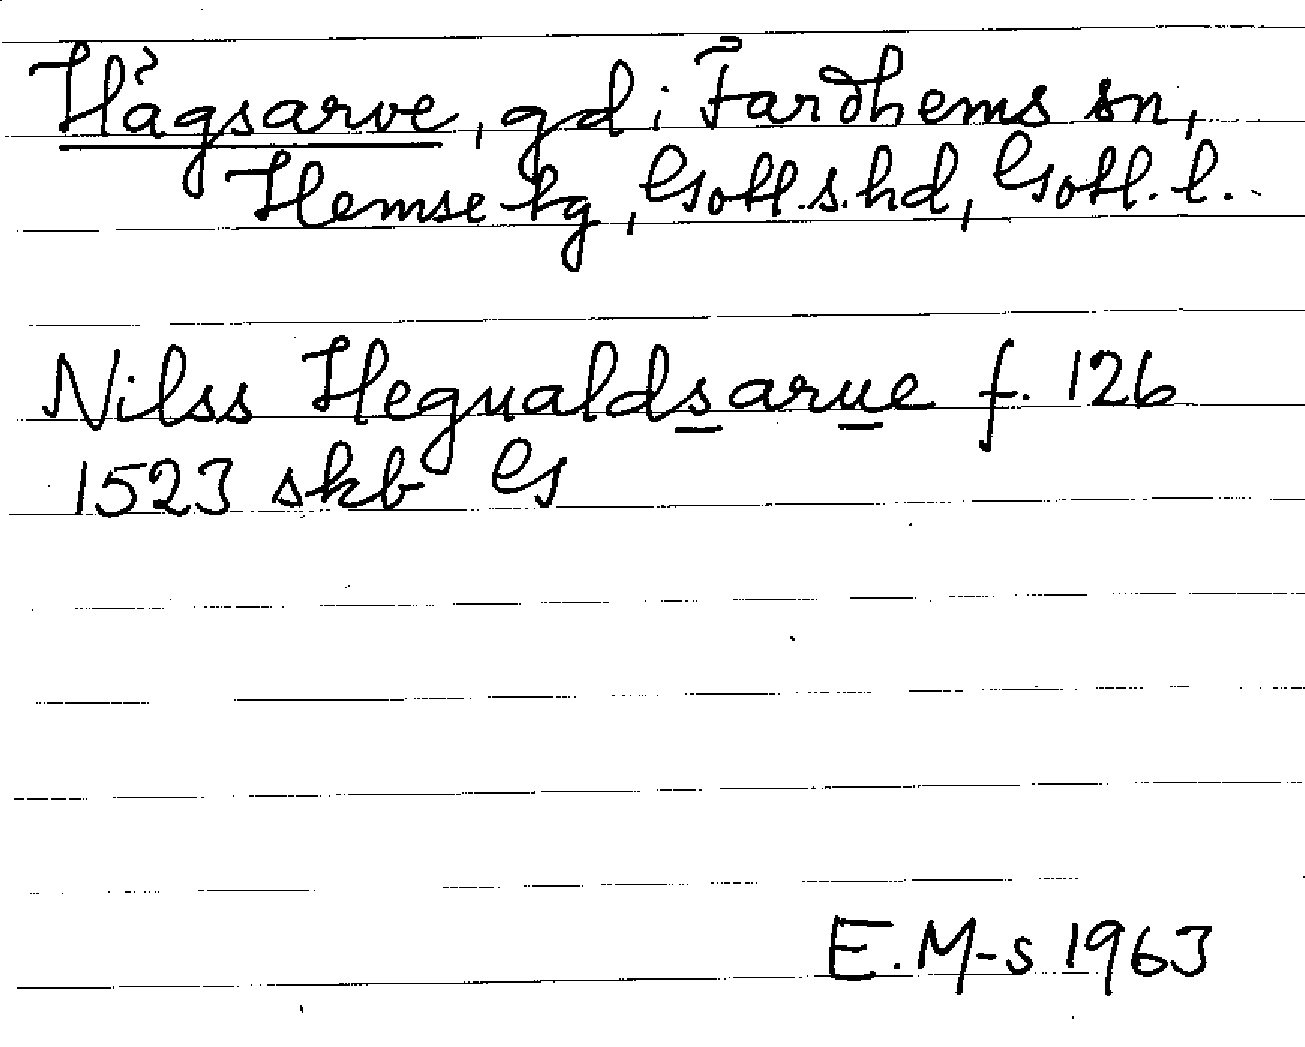 Hägsarve, gd i Fardhems sn,
Hemse tg, Gotl.s. hd, Gotl. l.
Nilss Hegualdsarue f. 126
1523 skb G
E.M-s 1963